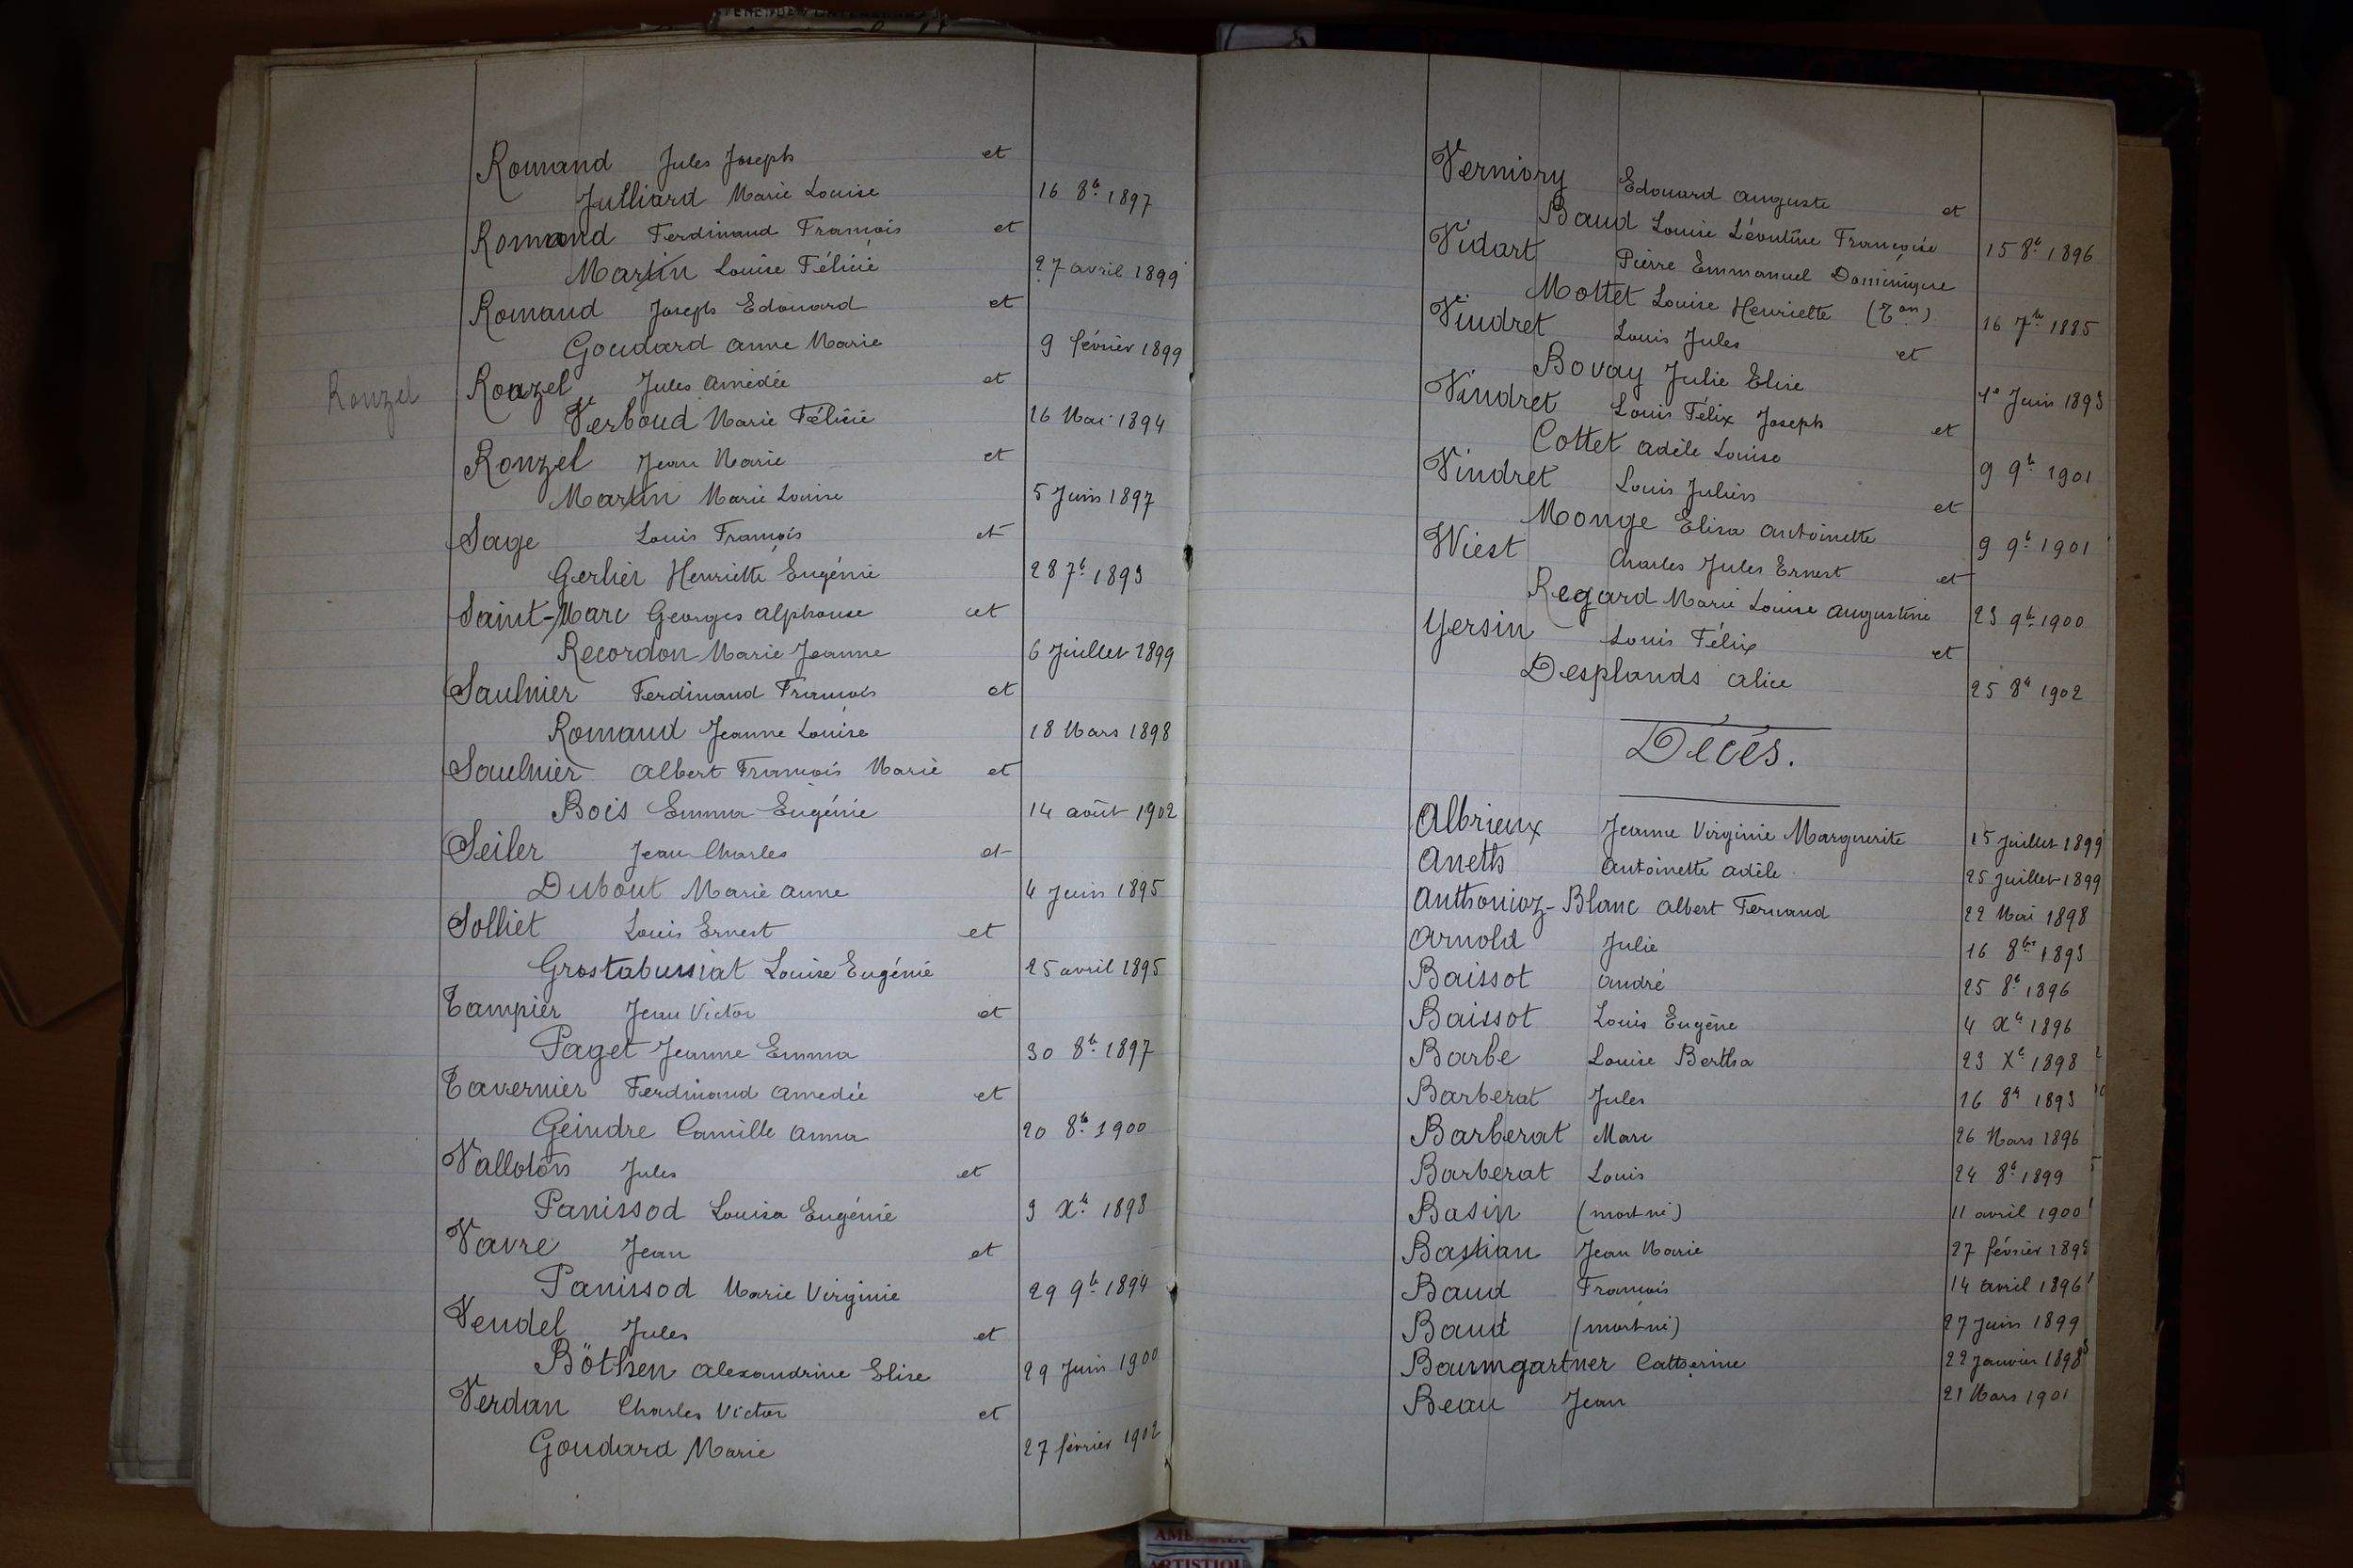 Romand Jules Joseph et
Julliard Marie Louise 16 8b. 1897
Romand Ferdinand François et
Martin Louise Félicie 27 avril 1899
Romand Joseph Edouard et
Goudard Anne Marie 9 février 1899
Ronzel Ronzel Jules Amédée et
Verboud Marie Félicie 26 Mai 1894
Ronzel Jean Marie et
Martin Marie Louise 5 Juin 1897
Sage Louis François et
Gerlier Henriette Eugénie 28 7b. 1893
Saint-Marc Georges Alphonse et
Recordon Marie Jeanne 6 Juillet 1899
Saulnier Ferdinand François et
Romand Jeanne Louise 18 Mars 1898
Saulnier Albert François Marie et
Bois Emma Eugénie 14 août 1902
Seiler Jean Charles et
Dubout Marie Anne 4 Juin 1895
Solliet Louis Ernest et
Grostabussiat Louise Eugénie 25 avril 1895
Tampier Jean Victor et
Paget Jeanne Emma 30 8b. 1897
Tavernier Ferdinand Amedée et
Geindre Camille Anna 20 8b. 1900
Valloton Jules et
Panissod Louisa Eugénie 3 Xb. 1898
Vavre Jean et
Panissod Marie Virginie 29 9b. 1894
Vendel Jules et
Böthen Alexandrine Elise 29 Juin 1900
Verdan Charles Victor et
Goudard Marie 27 février 1902
Verniory Edouard Auguste et
Baud Louise Léontine Françoise 15 8b. 1896
Vidart Pierre Emmanuel Dominique
Mottet Louise Henriette (Ton) 16 7b. 1885
Vindret Louis Jules et
Bovay Julie Elise 1e Juin 1893
Vindret Louis Félix Joseph et
Cottet Adèle Louise 9 9b. 1901
Vindret Louis Julien et
Monge Elisa Antoinette 9 9b. 1901
Wiest Charles Jules Ernest et
Regard Marie Louise Augustine 23 9b. 1900
Yersin Louis Félix et
Desplands Alice 25 8b 1902
Décès.
Albrieux Jeanne Virginie Marguerite 15 Juillet 1899
Aneth Antoinette Adèle 25 Juillet 1899
Anthonioz-Blanc Albert Fernand 22 Mai 1898
Arnold Julie 16 8b. 1893
Baissot André 25 8b. 1896
Baissot Louis Eugène 4 Xb. 1896
Barbe Louise Bertha 23 Xb. 1898
Barberat Jules 16 8b 1893
Barberat Marc 26 Mars 1896
Barberat Louis 24 8b. 1899
Basin (mort-né) 11 avril 1900
Bastian Jean Marie 27 février 1895
Baud François 14 avril 1896
Baud (mort-né) 27 Juin 1899
Baumgartner Catherine 22 Janvier 1898
Beau Jean 21 Mars 1901